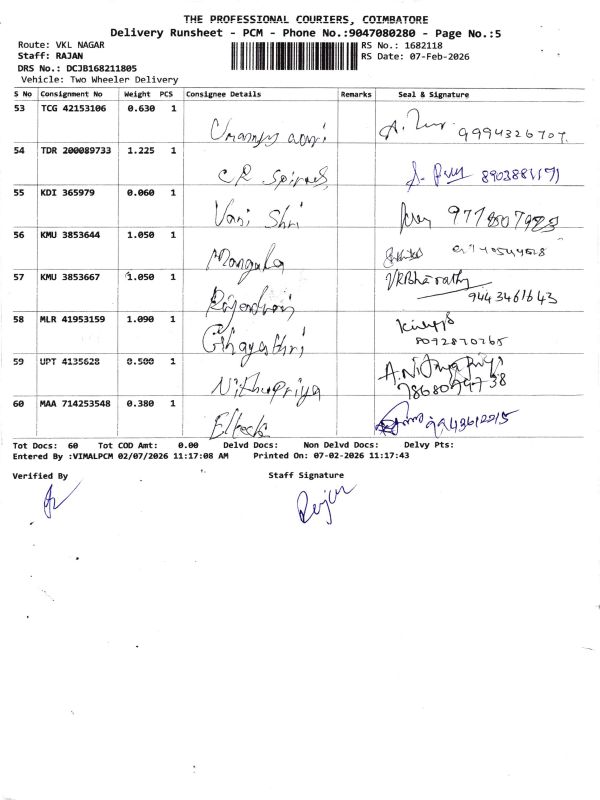 THE PROFESSIONAL COURIERS, COIMBATORE
Delivery Runsheet - PCM - Phone No.:9047080280 - Page No.:5
Route: VKL NAGAR RS No.: 1682118
Staff: RAJAN RS Date: 07-Feb-2026
DRS No.: DCJB168211805
Vehicle: Two Wheeler Delivery
S No Consignment No Weight PCS Consignee Details Remarks Seal & Signature
53 TCG 42153106 0.630 1
9994326707
54 TDR 200089733 1.225 1
55 KDI 365979 0.060 1
Vani Shri
56 KMU 3853644 1.050 1
Mangala
57 KMU 3853667 1.050 1
VRBharathy
9443461643
58 MLR 41953159 1.090 1
Ghayathri
8092870265
59 UPT 4135628 0.500 1
Nithupriya
60 MAA 714253548 0.380 1
Tot Docs: 60 Tot COD Amt: 0.00 Delvd Docs: Non Delvd Docs: Delvy Pts:
Entered By :VIMALPCM 02/07/2026 11:17:08 AM Printed On: 07-02-2026 11:17:43
Verified By Staff Signature
Rajan